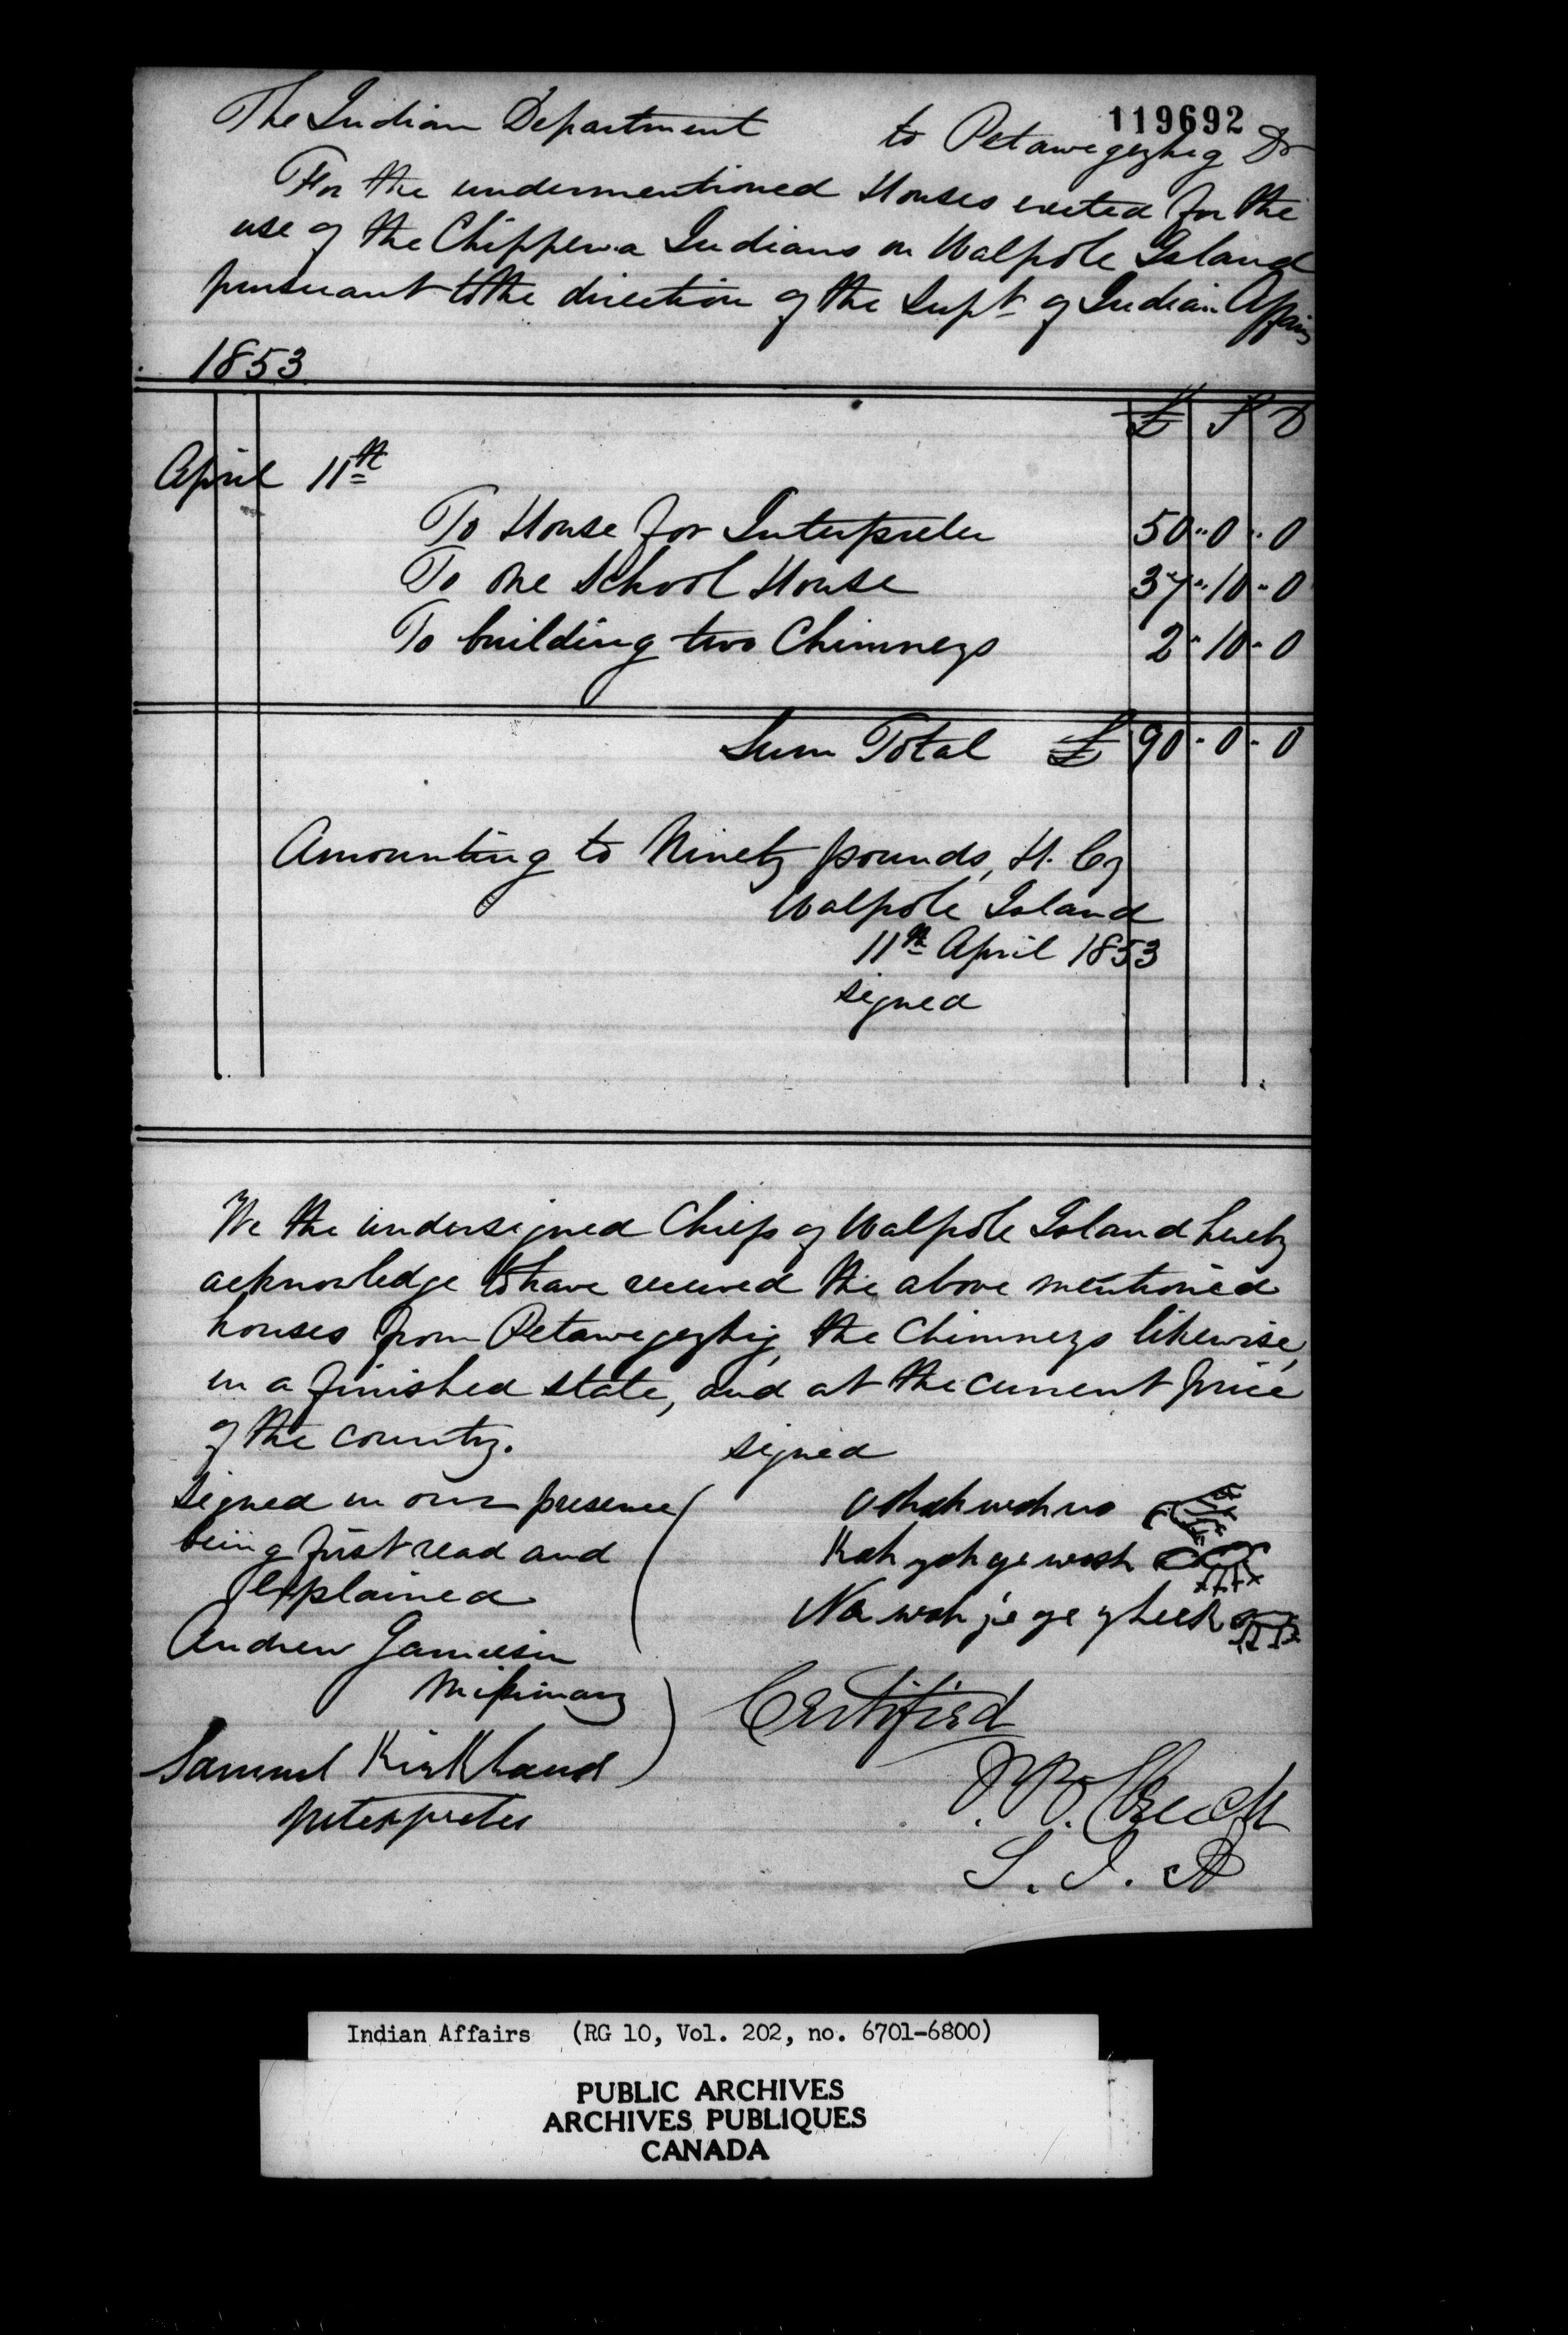 119692
The Indian Department to Petawegezhig Dr
For the undermentioned Houses erected for the
use of the Chippewa Indians on Walpole Island
pursuant to the direction of the Supt of Indian Affairs
1853
£ S D
April 11th
To House for Interpreter 50 " 0 " 0
To one School House 37 " 10 " 0
To building two Chimneys 2 " 10 " 0
Sum Total £ 90 " 0 " 0
Amounting to Ninety pounds, H. Cy
Walpole Island
11th April 1853
signed
We the undersigned Chiefs of Walpole Island hereby
acknowledge to have received the above mentioned
houses from Petawegezhig, the Chimneys likewise,
in a finished state, and at the current price
of the country.
signed
signed in our presence
being first read and
explained
Andrew Jamieson
Missionary
Samuel Kirkland
Interpreter
Oshahwahno
Kahyahgewash
Na wah je ge zheek
Certified
S. I. A
Indian Affairs (RG 10, Vol. 202, no. 6701-6800)
PUBLIC ARCHIVES
ARCHIVES PUBLIQUES
CANADA